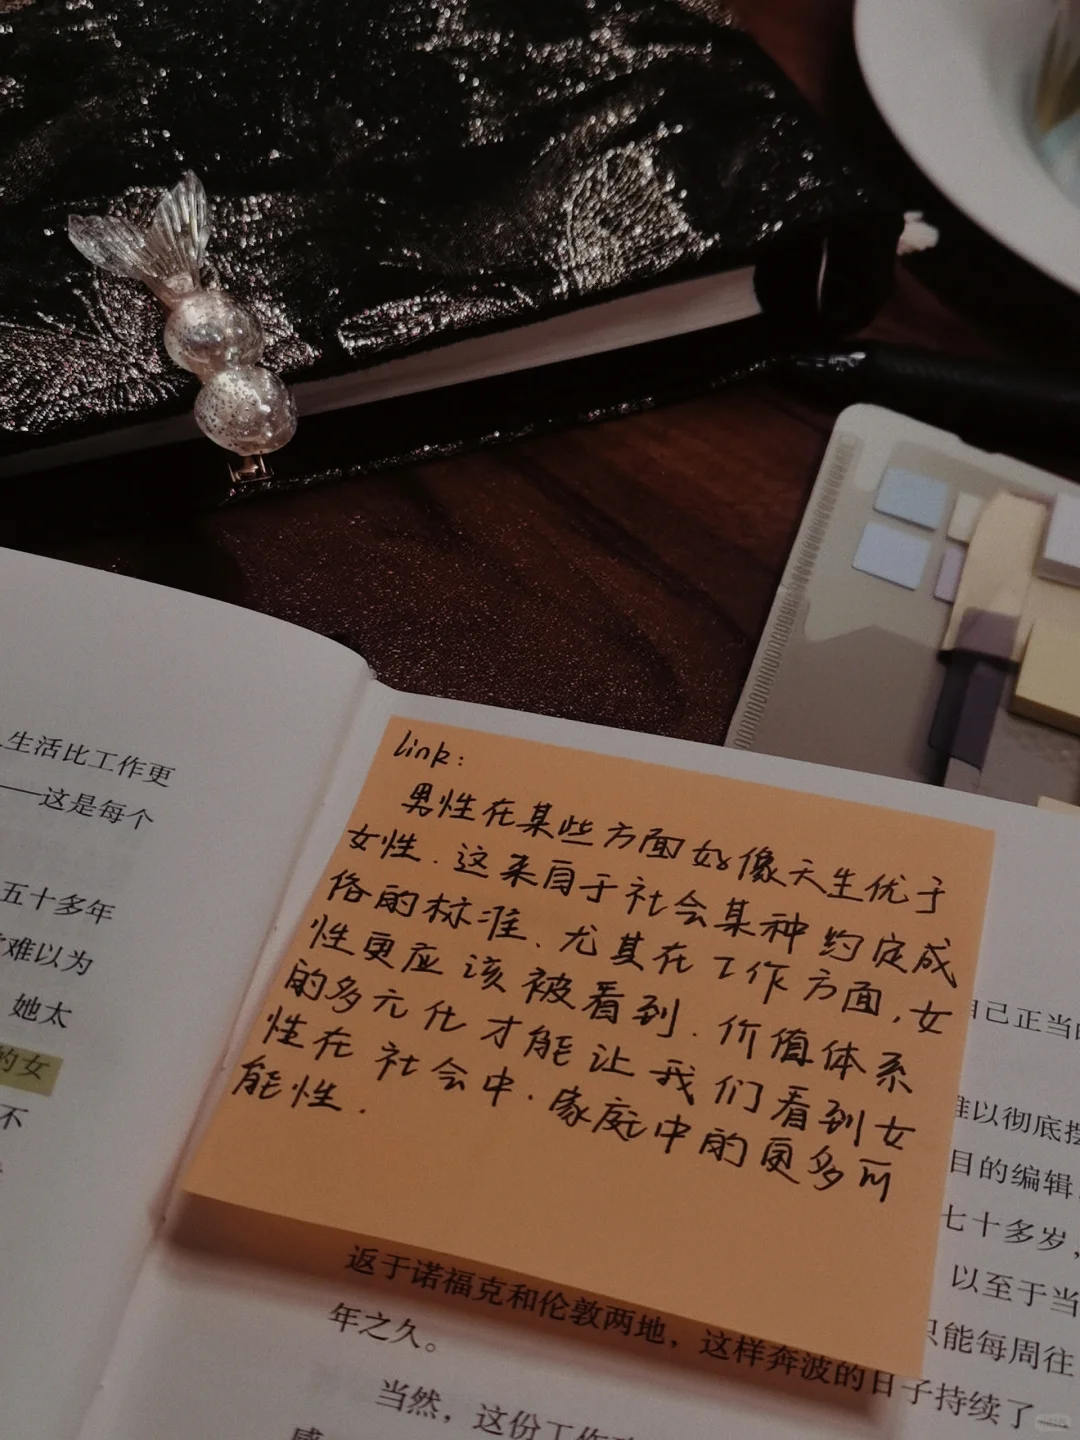 生活比工作更
——这是每个
五十多年
难以为
她太
的女
不
link:
男性在某些方面好像天生优于
女性.这来自于社会某种约定成
俗的标准、尤其在工作方面,女
性更应该被看到.价值体系
的多元化才能让我们看到女
性在社会中.家庭中的更多可
能性.
自己正当
难以彻底摆
目的编辑
七十多岁,
以至于当
只能每周往
返于诺福克和伦敦两地,这样奔波的日子持续了
年之久。
当然,这份工作
感